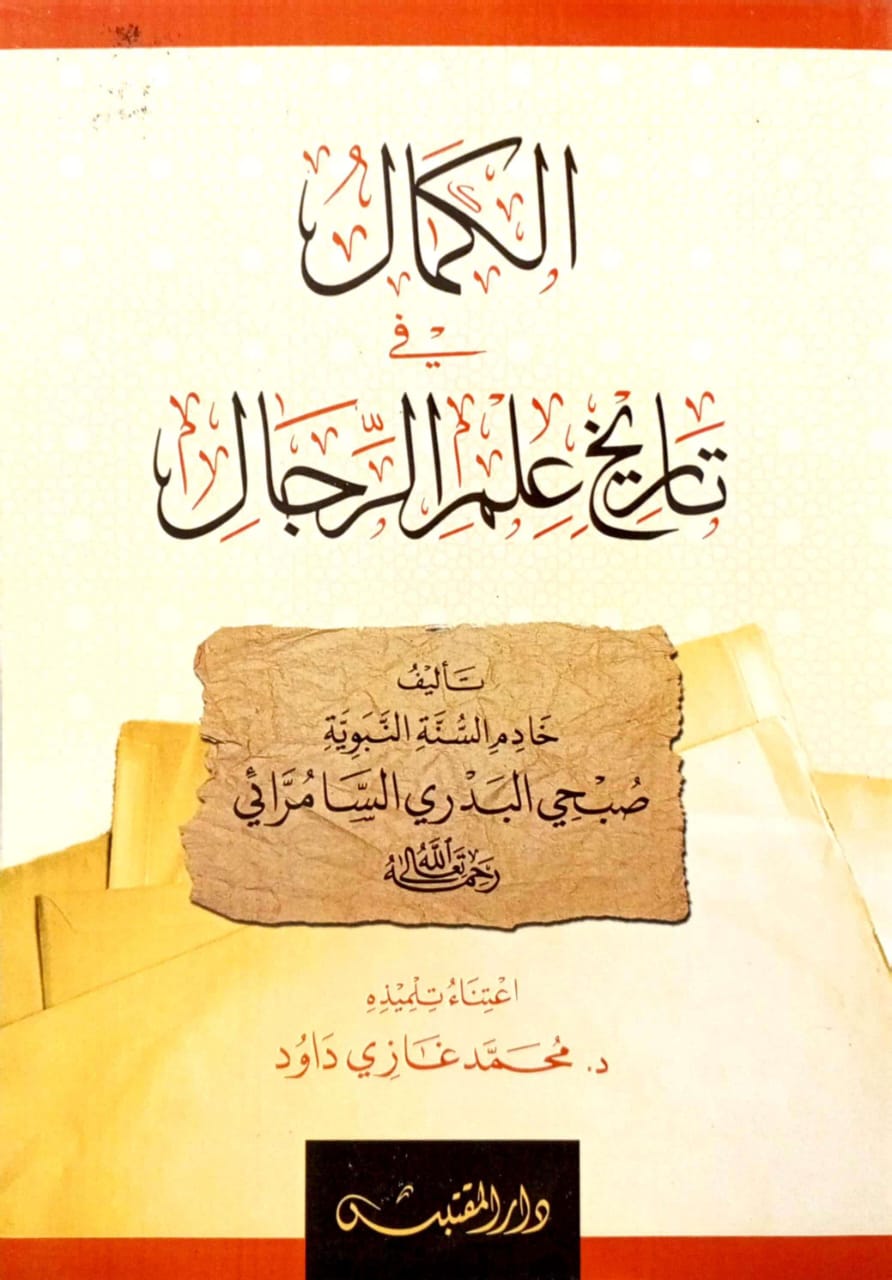 الكَمَالُ
في
تَارِيخِ عِلمِ الرِّجَالِ
تَأليفُ
خَادِمِ السُّنَّةِ النَّبَوِيَّةِ
صُبْحِي البَدْرِي السَّامُرَّائيِّ
رَحِمَهُ اللَّهُ تَعَالَى
اعْتِنَاءُ تِلْمِيْذِهِ
د. مُحَمَّد غَازِي دَاوُد
دار المقتبس